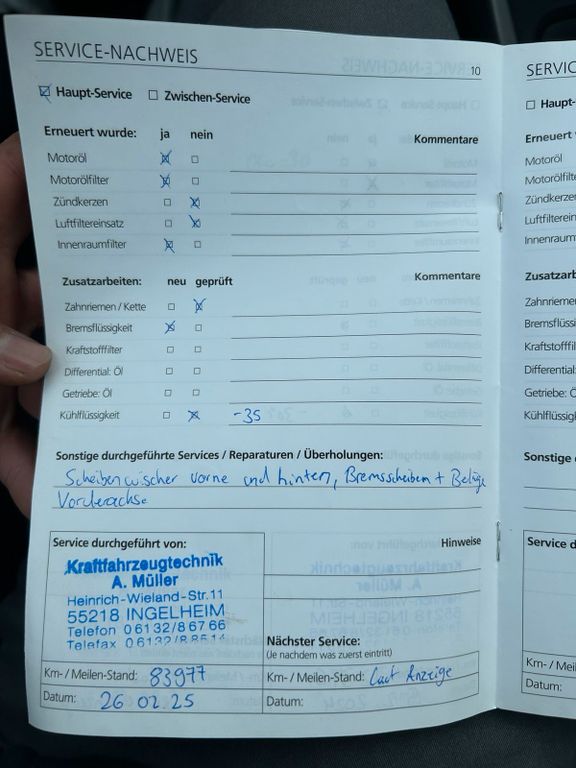 SERVICE-NACHWEIS
10
Haupt-Service Zwischen-Service
Erneuert wurde: ja nein Kommentare
Motoröl
Motorölfilter
Zündkerzen
Luftfiltereinsatz
Innenraumfilter
Zusatzarbeiten: neu geprüft Kommentare
Zahnriemen / Kette
Bremsflüssigkeit
Kraftstofffilter
Differential: Öl
Getriebe: Öl
Kühlflüssigkeit -35
Sonstige durchgeführte Services / Reparaturen / Überholungen:
Scheibenwischer vorne und hinten, Bremsscheiben + Beläge
Vorderachse
Service durchgeführt von:
Kraftfahrzeugtechnik
A. Müller
Heinrich-Wieland-Str.11
55218 INGELHEIM
Telefon 06132/86766
Telefax 06132/88514
Km- / Meilen-Stand: 83977
Datum: 26 02.25
Hinweise
Nächster Service:
(Je nachdem was zuerst eintritt)
Km- / Meilen-Stand: Laut Anzeige
Datum:
SERVIC
Haupt-
Erneuert w
Motoröl
Motorölfilte
Zündkerzen
Luftfiltereins
Innenraumf
Zusatzarbe
Zahnriemen
Bremsflüssig
Kraftstofffil
Differential:
Getriebe: Ö
Kühlflüssig
Sonstige d
Service d
Km- / Mei
Datum: